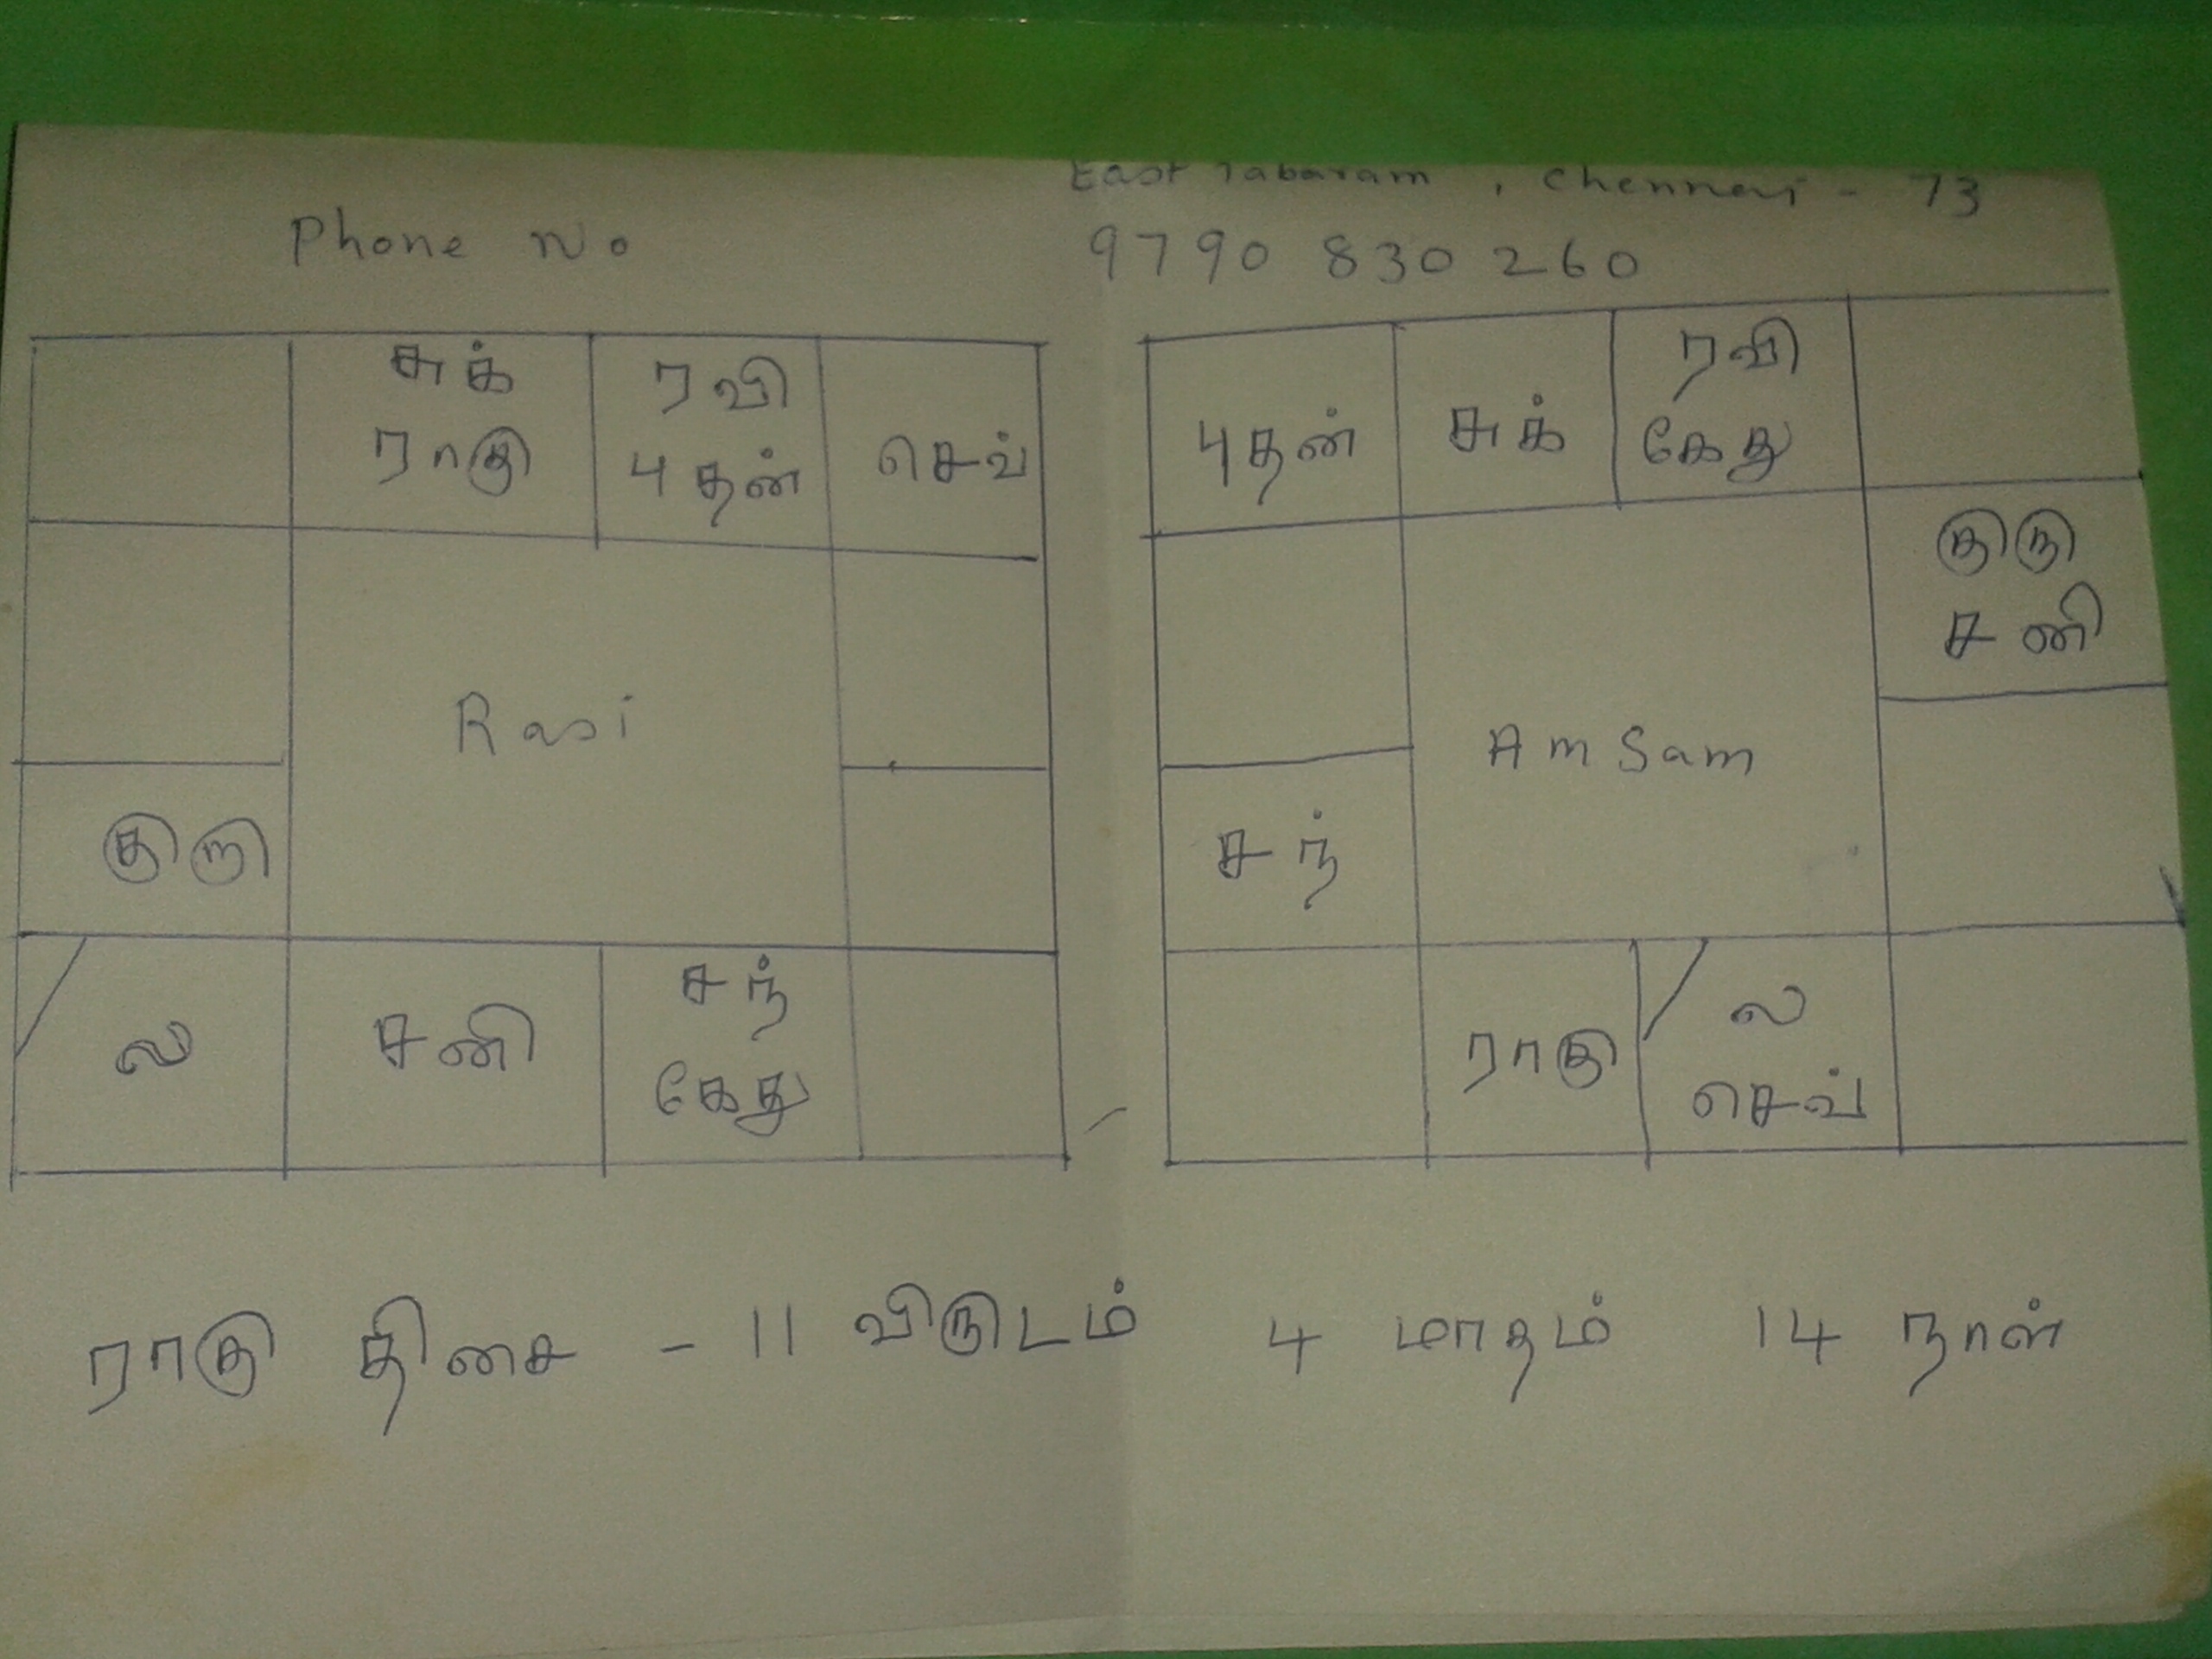 East Tabaram , Chennai - 73
Phone No 9790 830 260
சுக்
ராகு
ரவி
புதன்
செவ்
குரு
ல
சனி
சந்
கேது
Rasi
புதன்
சுக்
ரவி
கேது
குரு
சனி
சந்
ராகு
ல
செவ்
AmSam
ராகு திசை - 11 விருடம் 4 மாதம் 14 நாள்